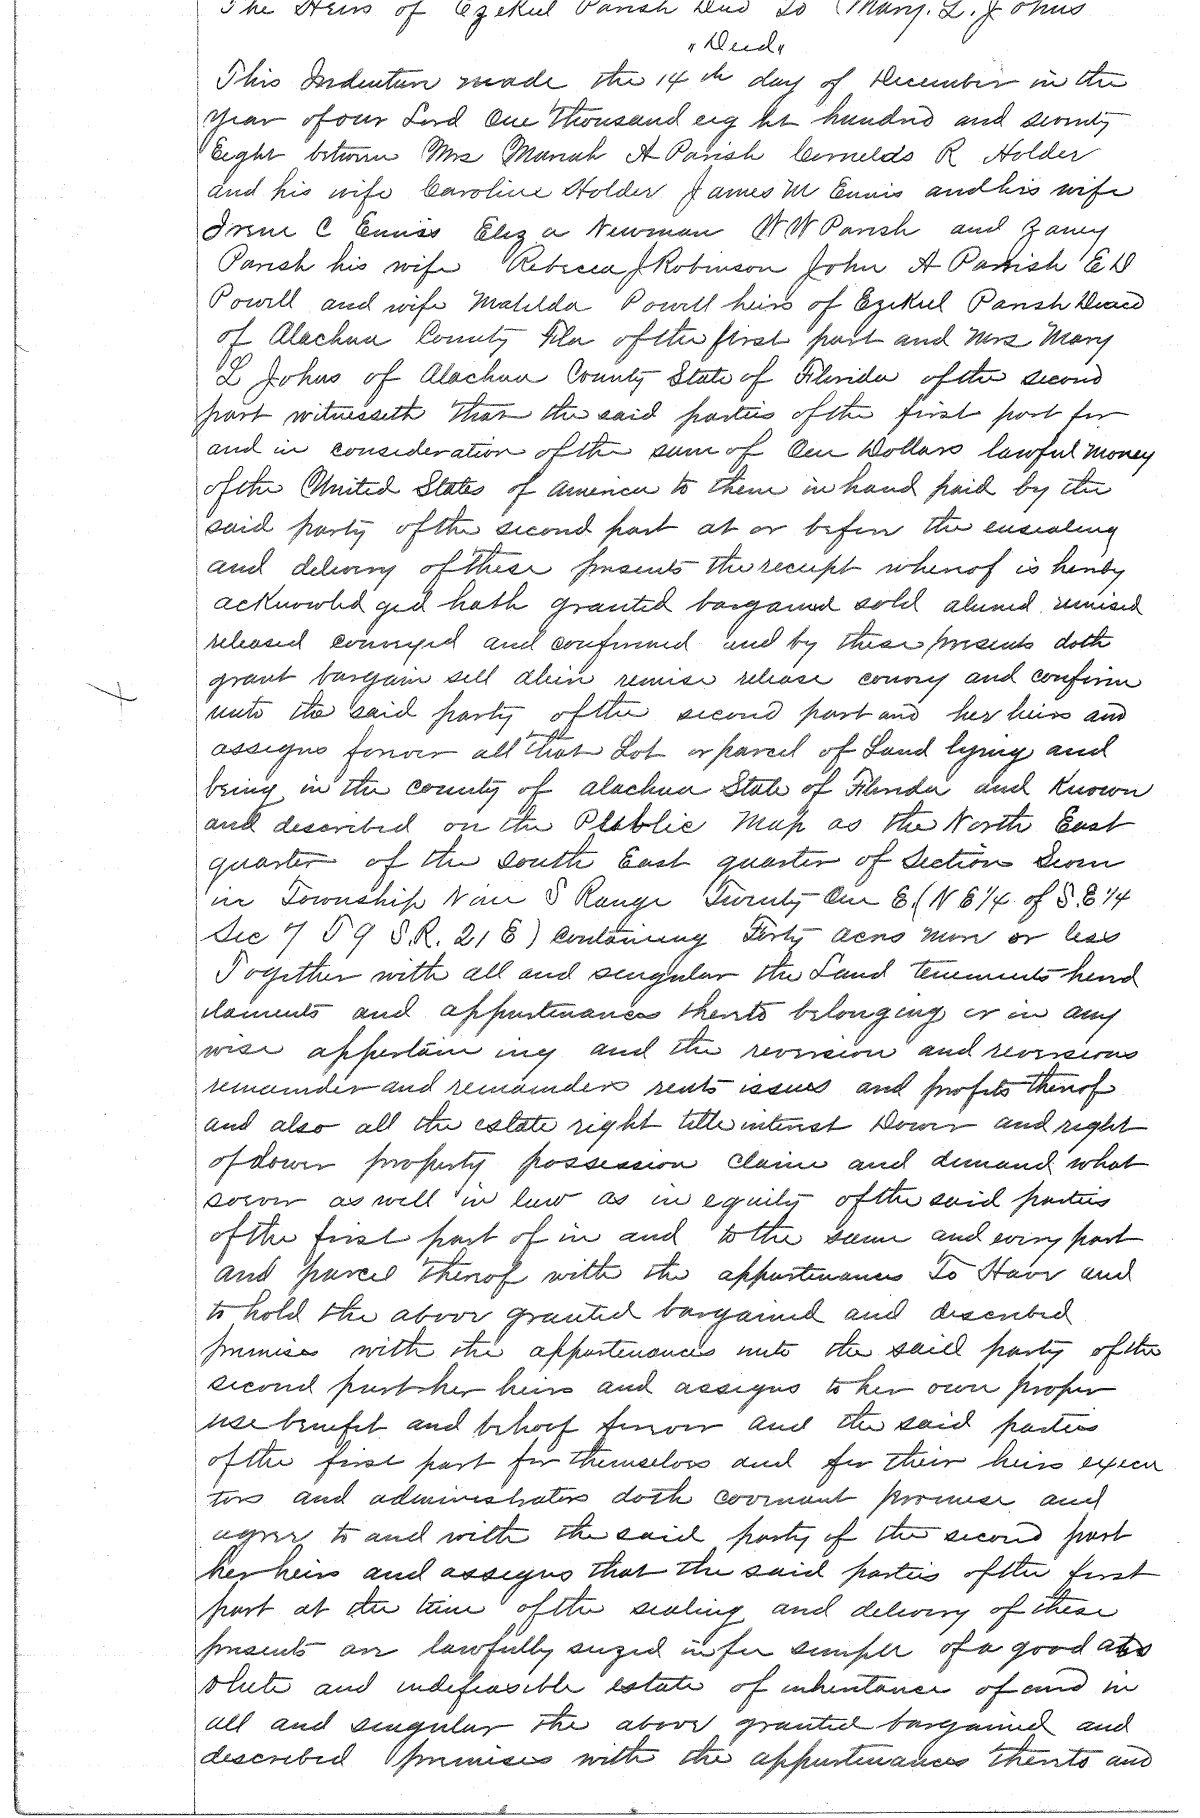 The Heirs of Ezekiel Parish Deed To Mary. L. Johns
"Deed"
This Indenture made the 14th day of December in the
year of our Lord One Thousand eight hundred and seventy
Eight between Mrs Mariah A Parish R Holder
and his wife Caroline Holder James M Ennis and his wife
Irene C Enniss Eliza Newman W W Parish and Zaney
Parish his wife Rebecca J Robinson John A Parrish E D
Powell and wife Matilda Powell heirs of Ezekiel Parish Deacd
of Alachua County Fla of the first part and Mrs Mary
L Johns of Alachua County State of Florida of the second
part witnesseth that the said parties of the first part for
and in consideration of the sum of One Dollars lawful money
of the United States of america to them in hand paid by the
said party of the second part at or before the ensealing
and delivery of these presents the receipt whereof is hereby
acknowledged hath granted bargained sold aliened remised
released conveyed and confirmed and by these presents doth
grant bargain sell alein remise release convey and confirm
unto the said party of the second part and her heirs and
assigns forever all that Lot or parcel of Land lying and
being in the county of alachua State of Florida and Known
and described on the Public Map as the North East
quarter of the south East quarter of Section Seven
in Township Nine S Range Twenty One E. (N E 1/4 of S.E 1/4
Sec 7 T 9 S.R. 21 E) containing Forty acres more or less
Together with all and singular the Land tenements hered
itaments and appurtenances thereto belonging or in any
wise appertaining and the reversion and reversions
remainder and remainders rents issues and profits thereof
and also all the estate right title interest Dower and right
of dower property possession claim and demand what
soever as well in law as in equity of the said parties
of the first part of in and to the same and every part
and parcel thereof with the appurtenances To Have and
to hold the above granted bargained and described
premises with the appurtenances unto the said party of the
second part her heirs and assigns to her own proper
use benefit and behoof forever and the said parties
of the first part for themselves and for their heirs execu
tors and administrators doth covenant promise and
agree to and with the said party of the second part
her heirs and assigns that the said parties of the first
part at the time of the sealing and delivery of these
presents are lawfully seized in fee simple of a good abs
olute and indefeasible estate of inheritance of and in
all and singular the above granted bargained and
described premises with the appurtenances thereto and